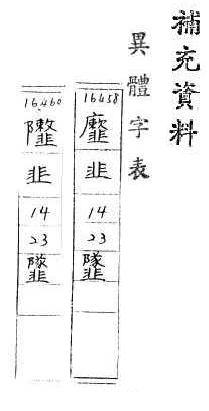 補充資料
異體字表
16458
韭
14
23
16460
韭
14
23